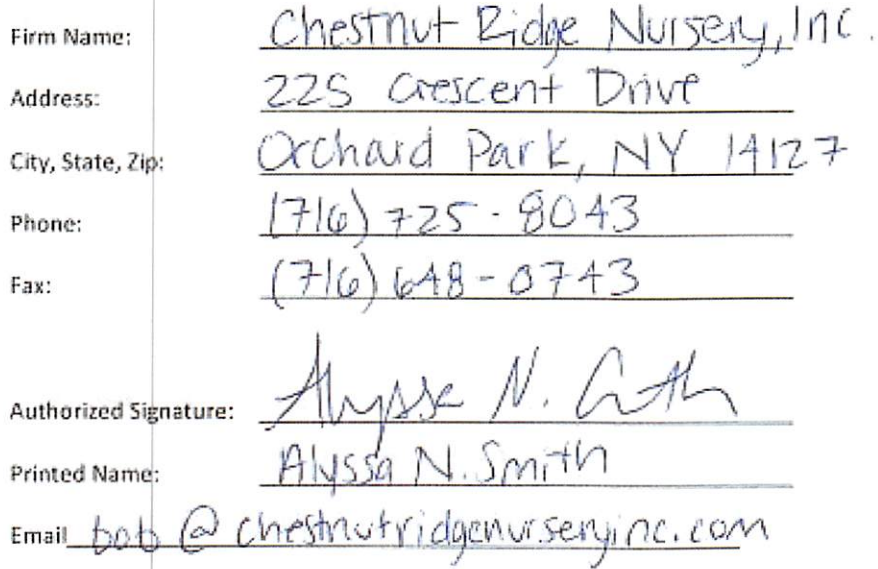 Firm Name: Chestnut Ridge Nursery, Inc.
Address: 225 Crescent Drive
City, State, Zip: Orchard Park, NY 14127
Phone: (716) 725-8043
Fax: (716) 648-0743
Authorized Signature: Alyssa N. Smith
Printed Name: Alyssa N. Smith
Email bob@chestnutridgenurseryinc.com